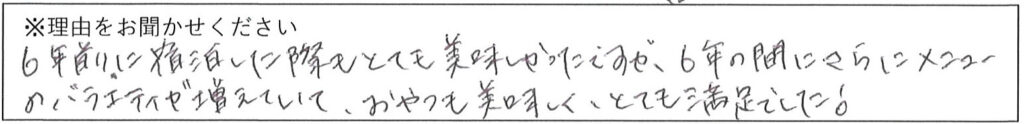 ※理由をお聞かせください
6年前に宿泊した際もとても美味しかったですが、6年の間にさらにメニュー
のバラエティが増えていて、おやつも美味しく、とても満足でした!